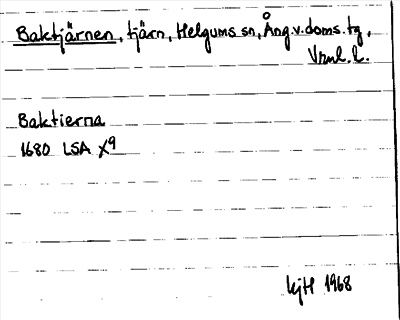 Baktjärnen, tjärn, Helgums sn, Ång.v.doms.tg,
Vrml. l.
Baktierna
1680 LSA X9
KjH 1968